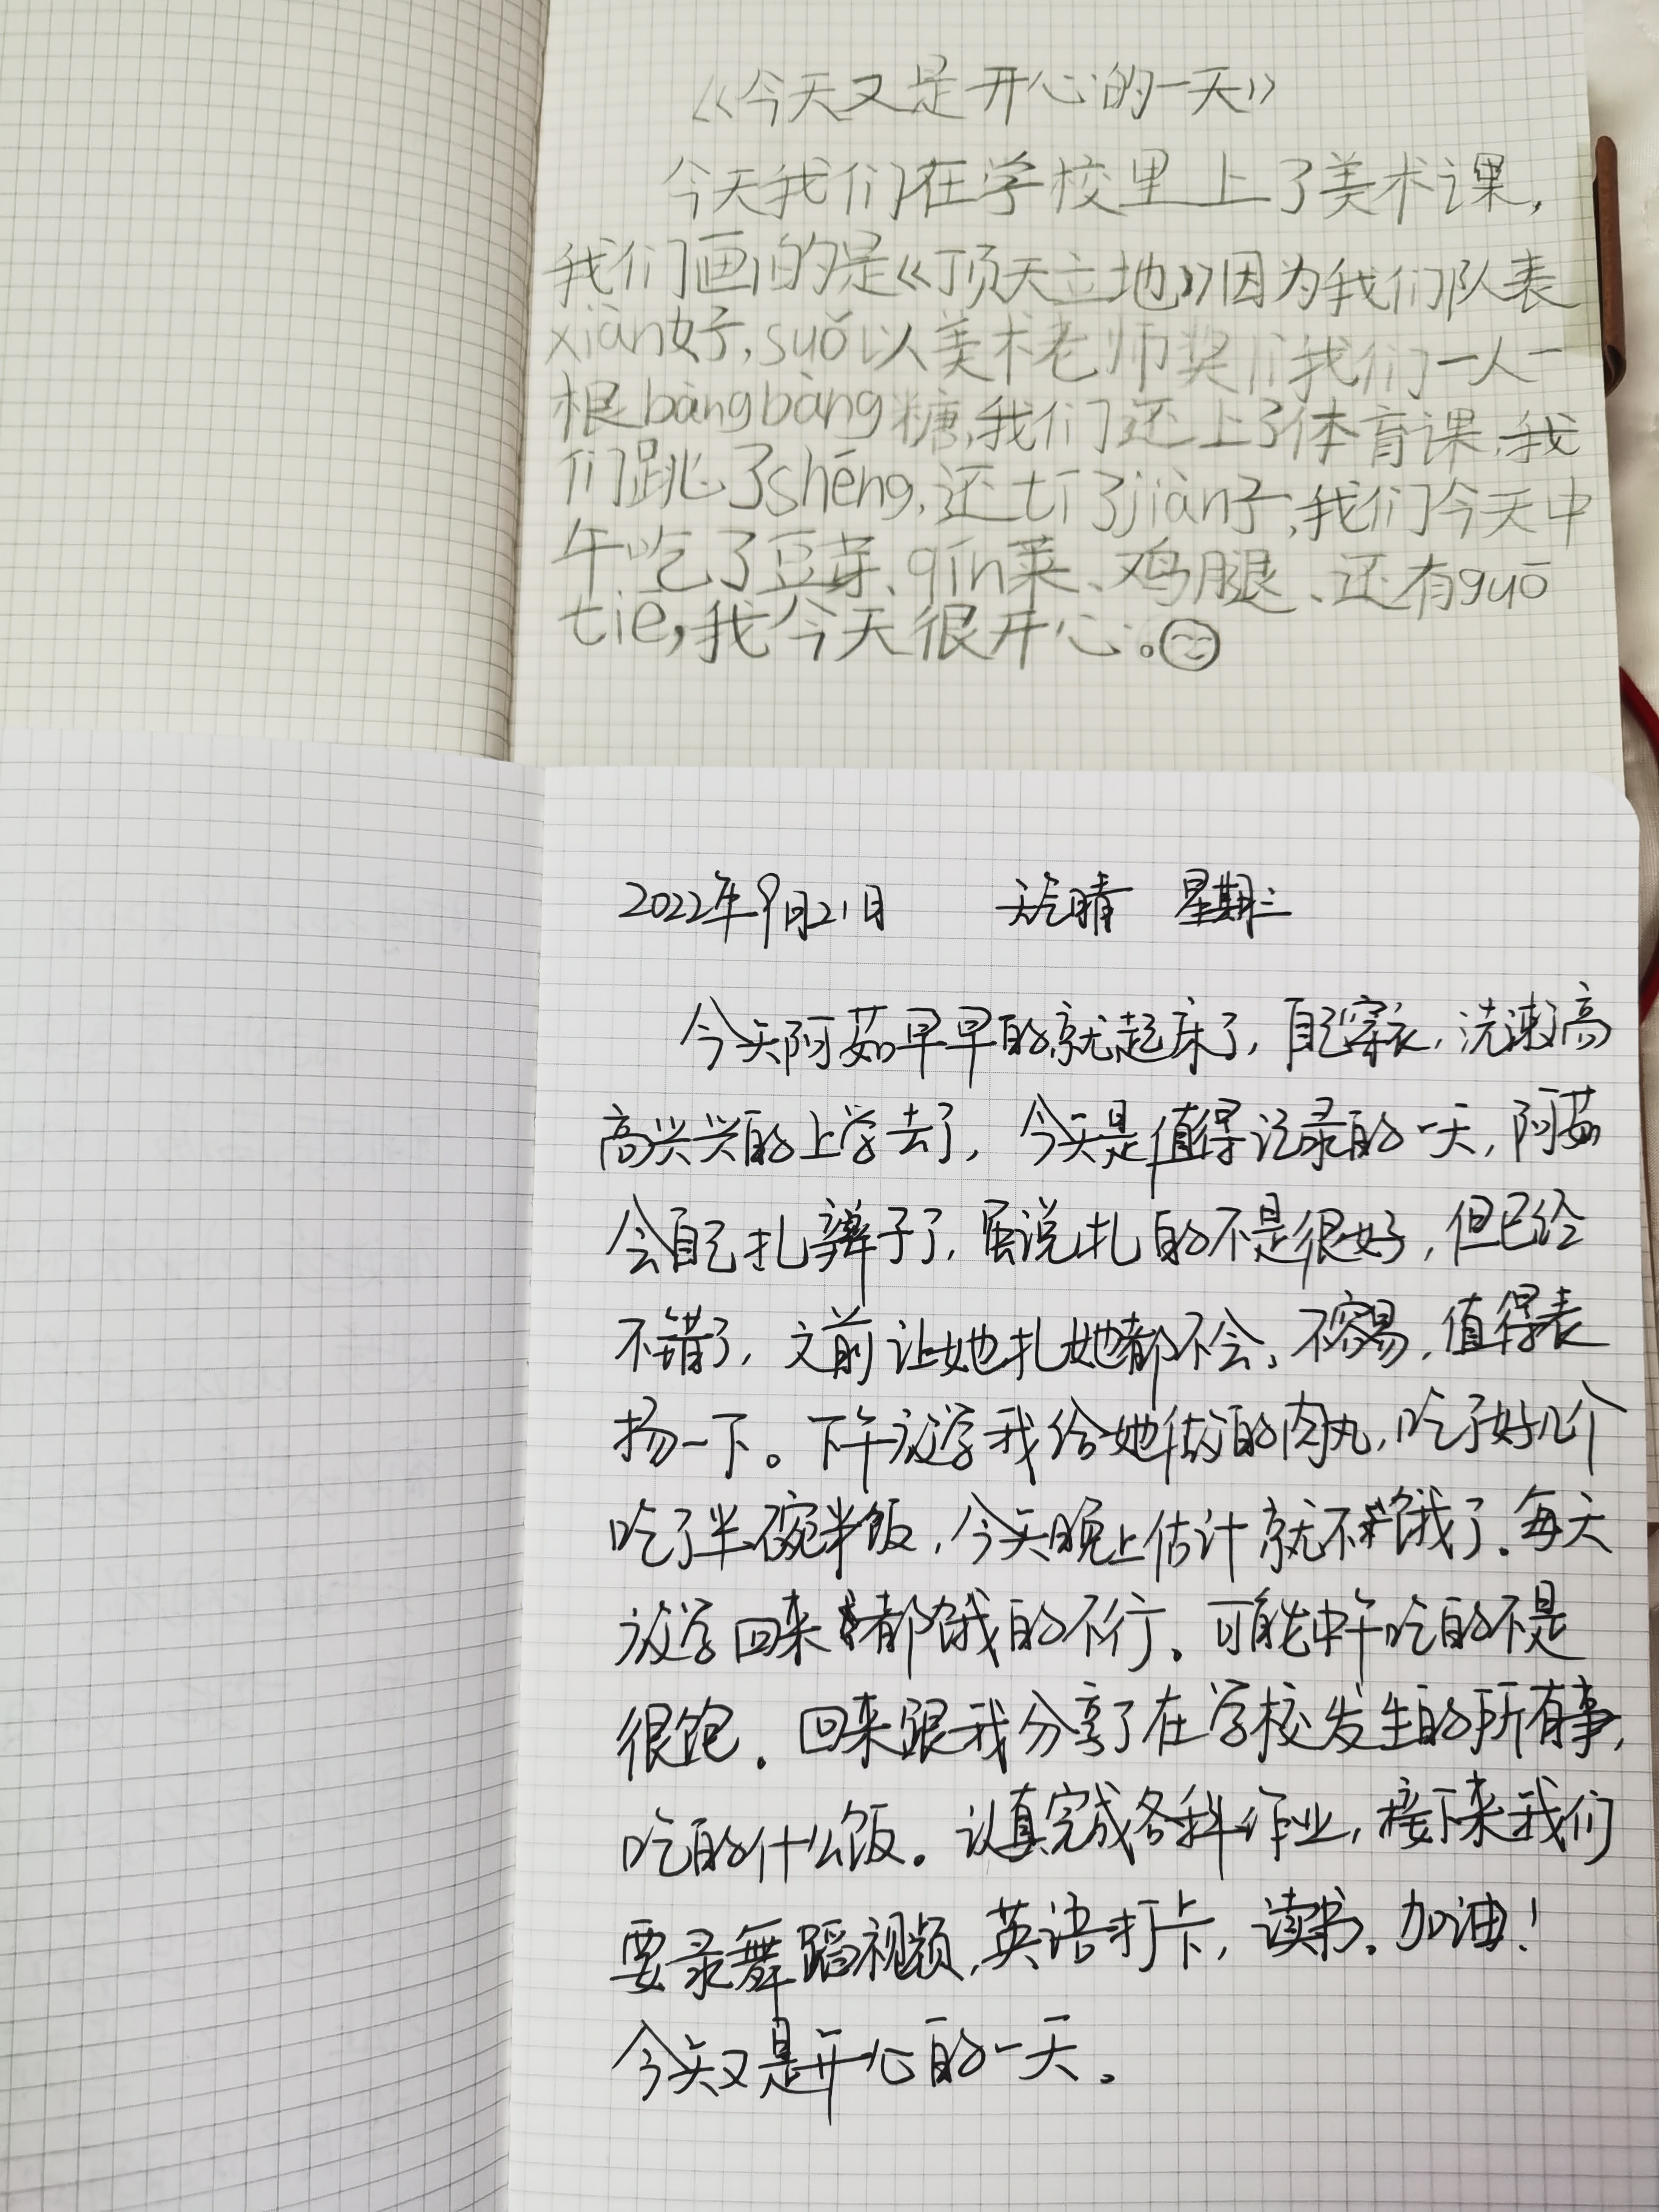 《今天又是开心的一天》
今天我们在学校里上了美术课,
我们画的是《顶天立地》因为我们队表
xiàn好,suǒ以美术老师奖们我们一人一
根bàngbàng糖,我们还上了体育课,我
们跳了shéng,还tī了jiàn子,我们今天中
午吃了豆芽、qín菜、鸡腿、还有guō
tiē,我今天很开心。
2022年9月21日 天气晴 星期三
今天阿茹早早的就起床了,自己穿衣,洗漱,高
高兴兴的上学去了,今天是值得记录的一天,阿茹
会自己扎辫子了,虽说扎的不是很好,但已经
不错了,之前让她扎她都不会,不容易,值得表
扬一下。下午放学我给她做的肉丸,吃了好几个
吃了半碗米饭,今天晚上估计就不饿了.每天
放学回来都饿的不行.可能中午吃的不是
很饱.回来跟我分享了在学校发生的所有事,
吃的什么饭.认真完成各科作业,接下来我们
要录舞蹈视频,英语打卡,读书.加油!
今天又是开心的一天.